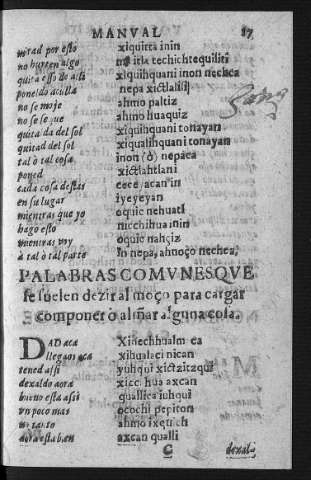 MANVAL 17
mirad por esto xiquitta inin
no hurten algo mitla techichtequiliti
quita esso de alli xiquihquani inon nechca
poneldo aculla nepa xictlalili
no se moje ahmo paltiz
no se seque ahmo huaquiz
quita da del sol xiquihquani tonayan
quitad del sol xiqualihquani tonayan
tal o tal cosa inon (o) nepaca
poned xictlahtlani
cada cosa de star ceceyacan in
en su lugar iyeyeyan
mientras que yo oquic nehuatl
hago esto nicchihua inin
mientras voy oquic nahçiz
à tal o tal parte in nepa, ahnoço nechca,
PALABRAS COMVNES QVE
se suelen dezir al moço para cargar
componer ò alinar alguna cosa.
DAD aca Xinechhualm ca
llegaos aca xihualaci nican
tened assi yuhqui xictzitzqui
dexaldo aora xiccahua axcan
bueno esta assi quallica iuhqui
vn poco mas ocachi pepiton
no tanto ahmo ixquich
aora esta bien axcan qualli
C dexal-